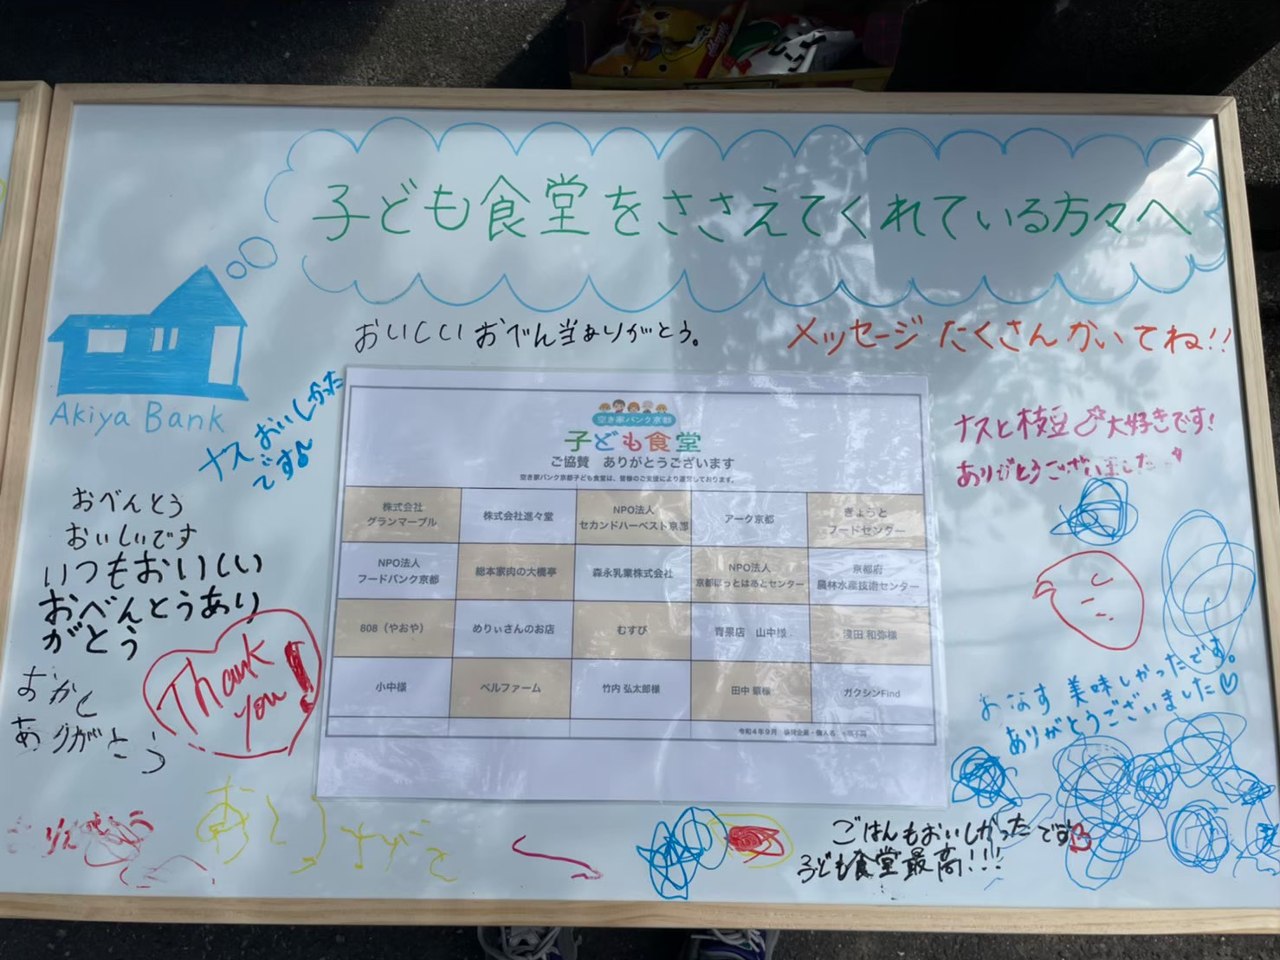 子ども食堂をささえてくれている方々へ
おいしいおべん当ありがとう。
メッセージ たくさんかいてね!!
Akiya Bank
ナスおいしかった
です♪
おべんとう
おいしいです
いつもおいしい
おべんとうあり
がとう
Thank
you!
おかし
ありがとう
空き家バンク京都
子ども食堂
ご協賛 ありがとうございます
空き家バンク京都子ども食堂は、皆様のご支援により運営しております。
株式会社
グランマーブル
株式会社進々堂
NPO法人
セカンドハーベスト京都
アーク京都
きょうと
フードセンター
NPO法人
フードバンク京都
総本家肉の大橋亭
森永乳業株式会社
NPO法人
京都ほっとはあとセンター
京都府
農林水産技術センター
808(やおや)
めりぃさんのお店
むすび
青果店 山中様
窪田 和弥様
小中様
ベルファーム
竹内 弘太郎様
田中 様
ガクシンFind
令和4年9月 協賛企業・個人名
ナスと枝豆大好きです!
ありがとうございました
おなす 美味しかったです。
ありがとうございました♡
ごはんもおいしかったです
子ども食堂最高!!!